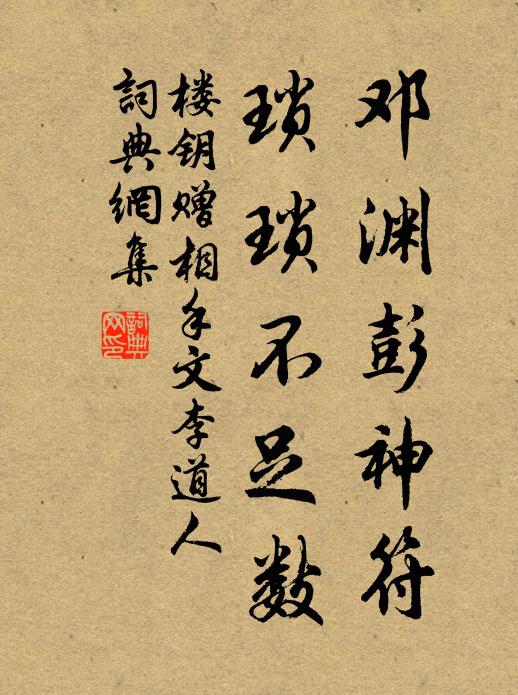 邓渊彭神符
琐琐不足数
楼钥赠相手文李道人
詞典網集
詞典
网印